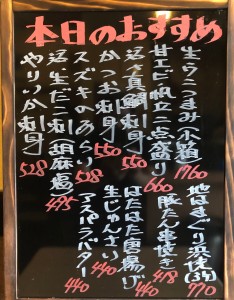 本日のおすすめ
生うにつまみ小題 1760
甘エビ帆立二点盛り 660
活〆真鯛刺身 550
かつお刺身 550
スズキのあらい 528
活生だこ刺 胡麻塩 495
やりいか刺身 528
地はまぐり浜焼(3ケ) 770
豚たん串焼き 418
はたはた唐揚げ 440
生じゅんさい 440
アスパラバター 440